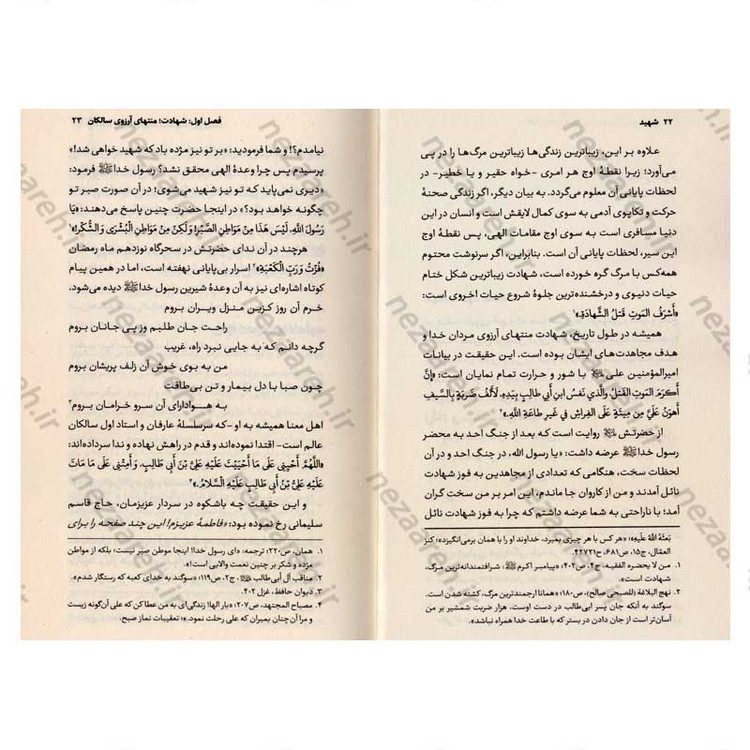 ۲۲ شهید
علاوه بر این، زیباترین زندگی‌ها زیباترین مرگ‌ها را در پی
می‌آورد؛ زیرا نقطهٔ اوج هر امری -خواه حقیر و یا خطیر- در
لحظات پایانی آن معلوم می‌گردد. به بیان دیگر، اگر زندگی صحنهٔ
حرکت و تکاپوی آدمی به سوی کمال لایقش است و انسان در این
دنیا مسافری است به سوی اوج مقامات الهی، پس نقطهٔ اوج
این سیر، لحظات پایانی آن است. بنابراین، اگر سرنوشت محتوم
همه‌کس با مرگ گره خورده است، شهادت زیباترین شکل ختام
حیات دنیوی و درخشنده‌ترین جلوهٔ شروع حیات اخروی است:
«أَشْرَفُ المَوتِ قَتلُ الشَّهادَةِ.»۱
همیشه در طول تاریخ، شهادت منتهای آرزوی مردان خدا و
هدف مجاهدت‌های ایشان بوده است. این حقیقت در بیانات
امیرالمؤمنین علی با شور و حرارت تمام نمایان است: «إنَّ
أَكرَمَ المَوتِ القَتلُ وَالَّذي نَفسُ ابنِ أبي طالِبٍ بِيَدِهِ، لَأَلفُ ضَربَةٍ بِالسَّيفِ
أهوَنُ عَلَيَّ مِن مِيتَةٍ عَلَى الفِراشِ في غَيرِ طاعَةِ اللّهِ.»۲
از حضرتش روایت است که بعد از جنگ احد به محضر
رسول خدا عرضه داشت: «یا رسول الله، در جنگ احد و در آن
لحظات سخت، هنگامی که تعدادی از مجاهدین به فوز شهادت
نائل آمدند و من از کاروان جا ماندم، این امر بر من سخت گران
آمد؛ با ناراحتی به شما عرضه داشتم که چرا به فوز شهادت نائل
بَعَثَهُ اللّهُ عَلَيهِ»؛ «هر کس با هر چیزی بمیرد، خداوند او را با همان برمی‌انگیزد»؛ کنز
العمّال، ج۱۵، ص۶۸۱، ح۴۲۷۲۱.
۱. من لا یحضره الفقیه، ج۴، ص۴۰۲؛ «پیامبر اکرم : شرافتمندانه‌ترین مرگ،
شهادت است.»
۲. نهج البلاغة (للصبحی صالح)، ص۱۸۰؛ «همانا ارجمندترین مرگ، کشته شدن است.
سوگند به آنکه جان پسر ابی‌طالب در دست اوست، هزار ضربت شمشیر بر من
آسان‌تر است از جان دادن در بستر که با طاعت خدا همراه نباشد».
فصل اول: شهادت؛ منتهای آرزوی سالکان ۲۳
نیامدم؟! و شما فرمودید: «بر تو نیز مژده باد که شهید خواهی شد!»
پرسیدم پس چرا وعدهٔ الهی محقق نشد؟ رسول خدا فرمود:
«دیری نمی‌پاید که تو نیز شهید می‌شوی؛ در آن صورت صبر تو
چگونه خواهد بود؟» در اینجا حضرت چنین پاسخ می‌دهند: «يَا
رَسُولَ اللّهِ، لَيْسَ هَذَا مِنْ مَوَاطِنِ الصَّبْرِ! وَلَكِنْ مِنْ مَوَاطِنِ الْبُشْرَى وَ الشُّكْرِ!»۱
هرچند در آن ندای حضرتش در سحرگاه نوزدهم ماه رمضان
«فُزْتُ وَ رَبِّ الْكَعْبَةِ»۲ اسرار بی‌پایانی نهفته است، اما در همین پیام
کوتاه اشاره‌ای نیز به آن وعدهٔ شیرین رسول خدا دیده می‌شود.
خرم آن روز کزین منزل ویران بروم
راحت جان طلبم وز پی جانان بروم
گرچه دانم که به جایی نبرد راه، غریب
من به بوی خوش آن زلف پریشان بروم
چون صبا با دل بیمار و تن بی‌طاقت
به هواداری آن سرو خرامان بروم۳
اهل معنا همیشه به او -که سرسلسلهٔ عارفان و استاد اول سالکان
عالم است- اقتدا نموده‌اند و قدم در راهش نهاده و ندا سرداده‌اند:
«اللَّهُمَّ أَحْيِنِي عَلَى مَا أَحْيَيْتَ عَلَيْهِ عَلِيَّ بْنَ أَبِي طَالِبٍ، وَ أَمِتْنِي عَلَى مَا مَاتَ
عَلَيْهِ عَلِيُّ بْنُ أَبِي طَالِبٍ عَلَيْهِ السَّلَامُ.»۴
و این حقیقت چه باشکوه در سردار عزیزمان، حاج قاسم
سلیمانی رخ نموده بود: «فاطمهٔ عزیزم! این چند صفحه را برای
۱. همان، ص۲۲۰؛ ترجمه: «ای رسول خدا! اینجا موطن صبر نیست؛ بلکه از مواطن
مژده و شکر بر چنین نعمت والایی است!»
۲. مناقب آل أبی‌طالب ، ج۲، ص۱۱۹؛ «سوگند به خدای کعبه که رستگار شدم».
۳. دیوان حافظ، غزل ۴۰۲.
۴. مصباح المجتهد، ص۲۰۷؛ «بار الها! زندگی‌ای به من عطا کن که علی آن‌گونه زیست
و مرا آن چنان بمیران که علی رحلت نمود.»؛ تعقیبات نماز صبح.
nezaareh.ir